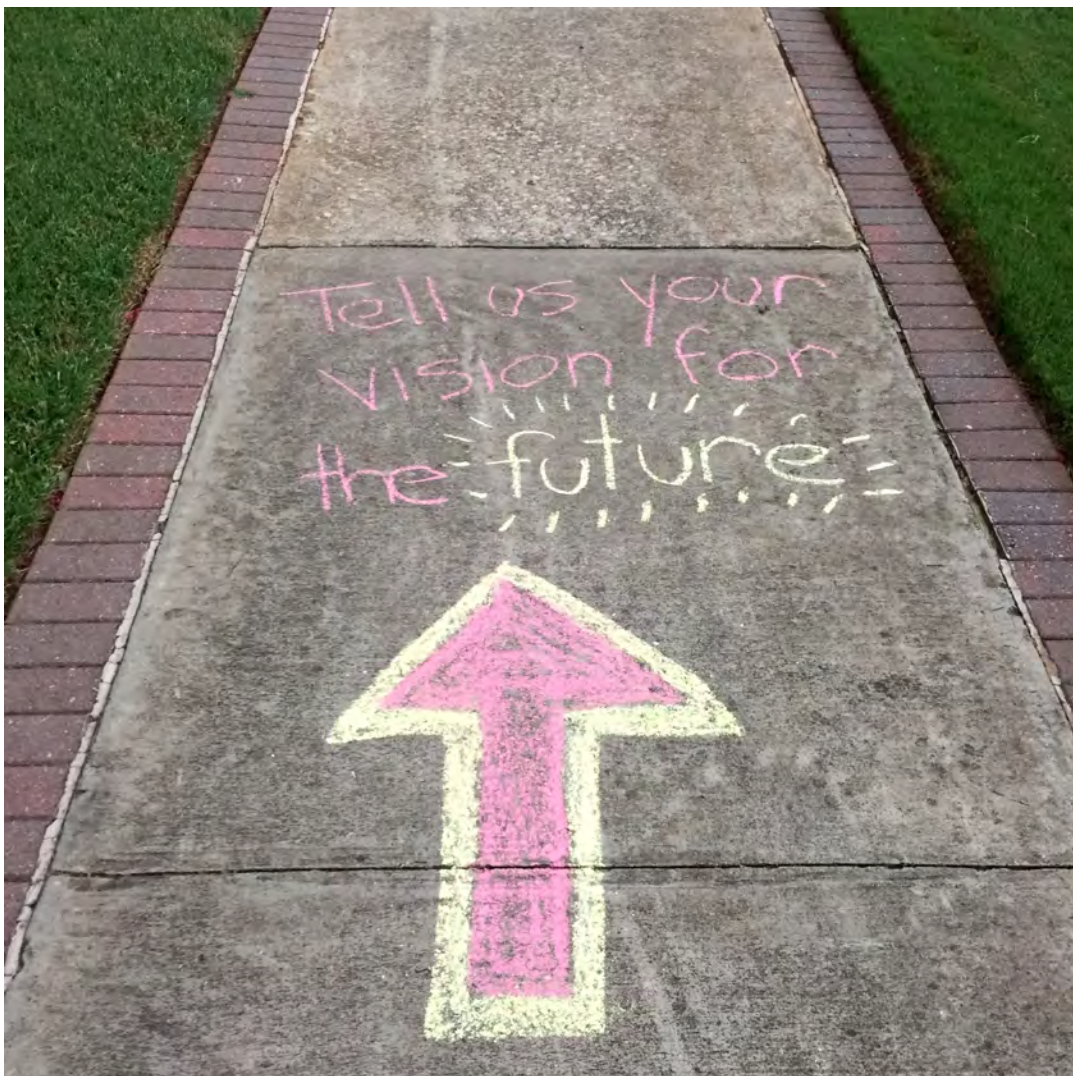 Tell us your
vision for
the future